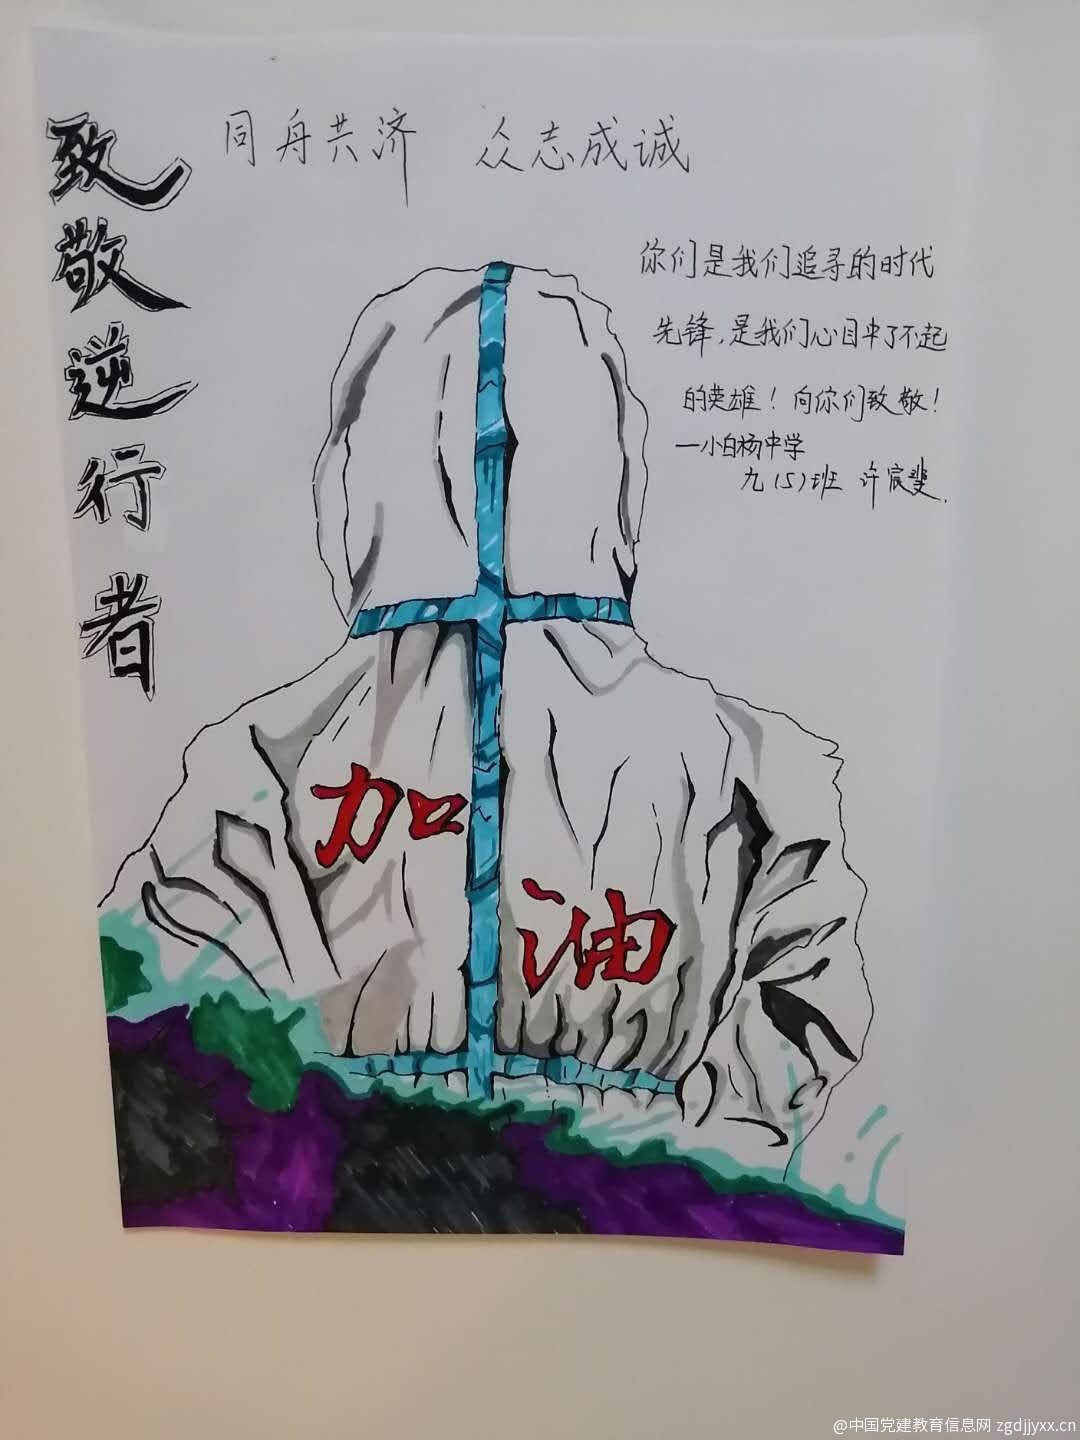 致敬逆行者
同舟共济 众志成诚
你们是我们追寻的时代
先锋,是我们心目中了不起
的英雄！向你们致敬！
—小白杨中学
九(5)班 许宸斐.
加油
@中国党建教育信息网 zgdjjyxx.cn